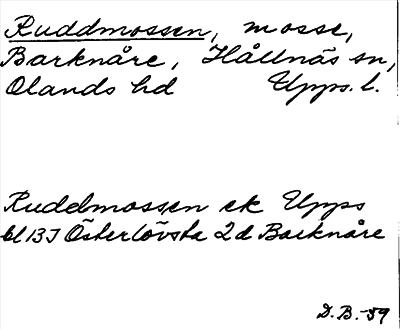 Ruddmossen, mosse,
Barknåre, Hållnäs sn,
Olands hd Upps. l.
Ruddmossen ek Upps
bl 13J Österlövsta 2d Barknåre
D.B. -59